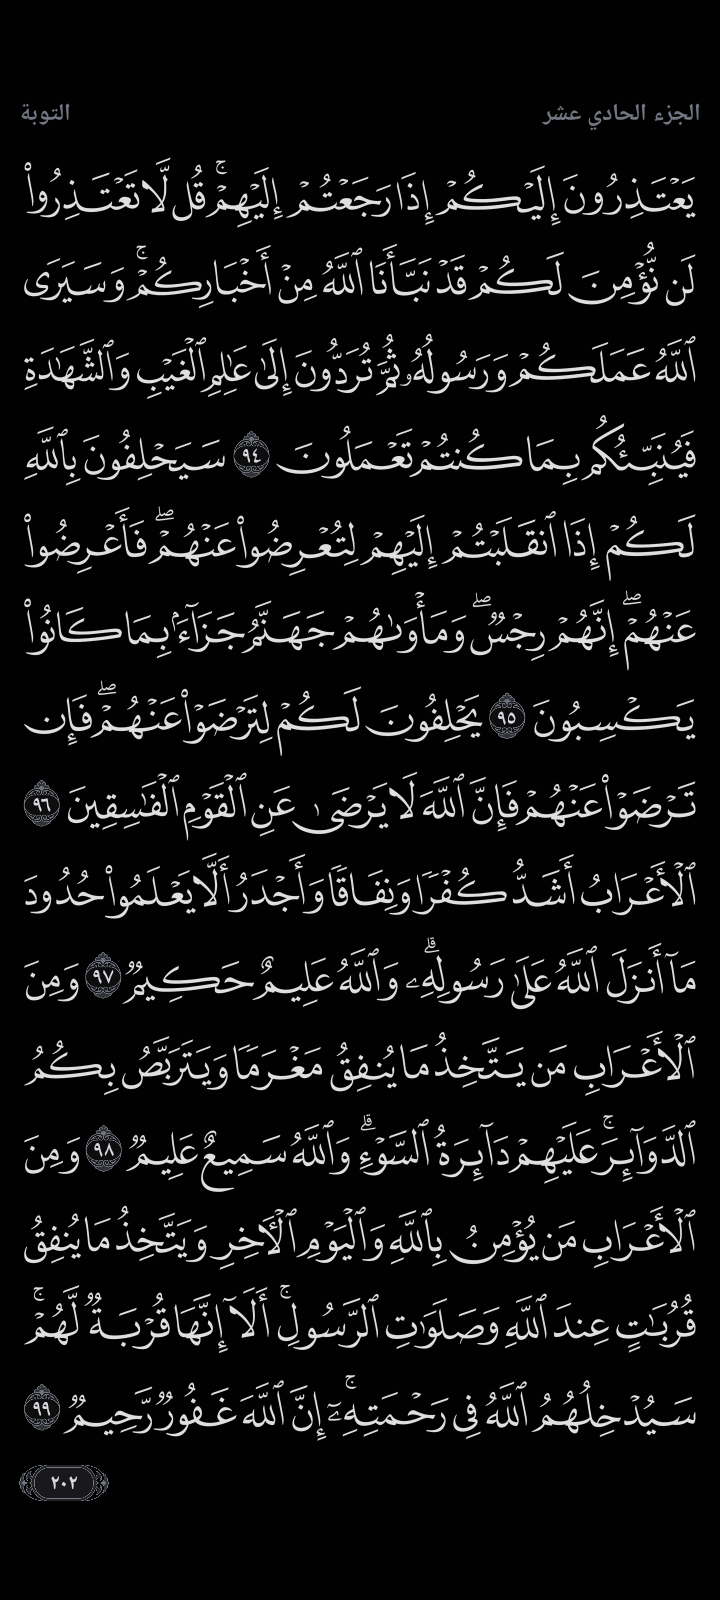 الجزء الحادي عشر
التوبة
يَعْتَذِرُونَ إِلَيْكُمْ إِذَا رَجَعْتُمْ إِلَيْهِمْ ۚ قُل لَّا تَعْتَذِرُوا۟
لَن نُّؤْمِنَ لَكُمْ قَدْ نَبَّأَنَا ٱللَّهُ مِنْ أَخْبَارِكُمْ ۚ وَسَيَرَى
ٱللَّهُ عَمَلَكُمْ وَرَسُولُهُۥ ثُمَّ تُرَدُّونَ إِلَىٰ عَـٰلِمِ ٱلْغَيْبِ وَٱلشَّهَـٰدَةِ
فَيُنَبِّئُكُم بِمَا كُنتُمْ تَعْمَلُونَ ٩٤ سَيَحْلِفُونَ بِٱللَّهِ
لَكُمْ إِذَا ٱنقَلَبْتُمْ إِلَيْهِمْ لِتُعْرِضُوا۟ عَنْهُمْ ۖ فَأَعْرِضُوا۟
عَنْهُمْ ۖ إِنَّهُمْ رِجْسٌ ۖ وَمَأْوَىٰهُمْ جَهَنَّمُ جَزَآءًۢ بِمَا كَانُوا۟
يَكْسِبُونَ ٩٥ يَحْلِفُونَ لَكُمْ لِتَرْضَوْا۟ عَنْهُمْ ۖ فَإِن
تَرْضَوْا۟ عَنْهُمْ فَإِنَّ ٱللَّهَ لَا يَرْضَىٰ عَنِ ٱلْقَوْمِ ٱلْفَـٰسِقِينَ ٩٦
ٱلْأَعْرَابُ أَشَدُّ كُفْرًا وَنِفَاقًا وَأَجْدَرُ أَلَّا يَعْلَمُوا۟ حُدُودَ
مَآ أَنزَلَ ٱللَّهُ عَلَىٰ رَسُولِهِۦ ۗ وَٱللَّهُ عَلِيمٌ حَكِيمٌ ٩٧ وَمِنَ
ٱلْأَعْرَابِ مَن يَتَّخِذُ مَا يُنفِقُ مَغْرَمًا وَيَتَرَبَّصُ بِكُمُ
ٱلدَّوَآئِرَ ۚ عَلَيْهِمْ دَآئِرَةُ ٱلسَّوْءِ ۗ وَٱللَّهُ سَمِيعٌ عَلِيمٌ ٩٨ وَمِنَ
ٱلْأَعْرَابِ مَن يُؤْمِنُ بِٱللَّهِ وَٱلْيَوْمِ ٱلْـَٔاخِرِ وَيَتَّخِذُ مَا يُنفِقُ
قُرُبَـٰتٍ عِندَ ٱللَّهِ وَصَلَوَٰتِ ٱلرَّسُولِ ۚ أَلَآ إِنَّهَا قُرْبَةٌ لَّهُمْ ۚ
سَيُدْخِلُهُمُ ٱللَّهُ فِى رَحْمَتِهِۦٓ ۚ إِنَّ ٱللَّهَ غَفُورٌ رَّحِيمٌ ٩٩
٢٠٢